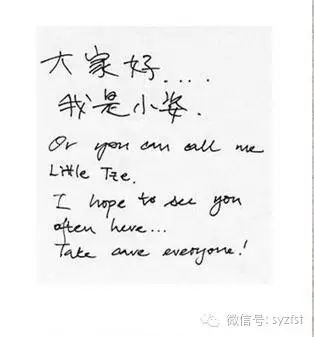 大家好....
我是小姿.
Or you can call me
Little Tze.
I hope to see you
often here...
Take care everyone!
微信号: syzfst